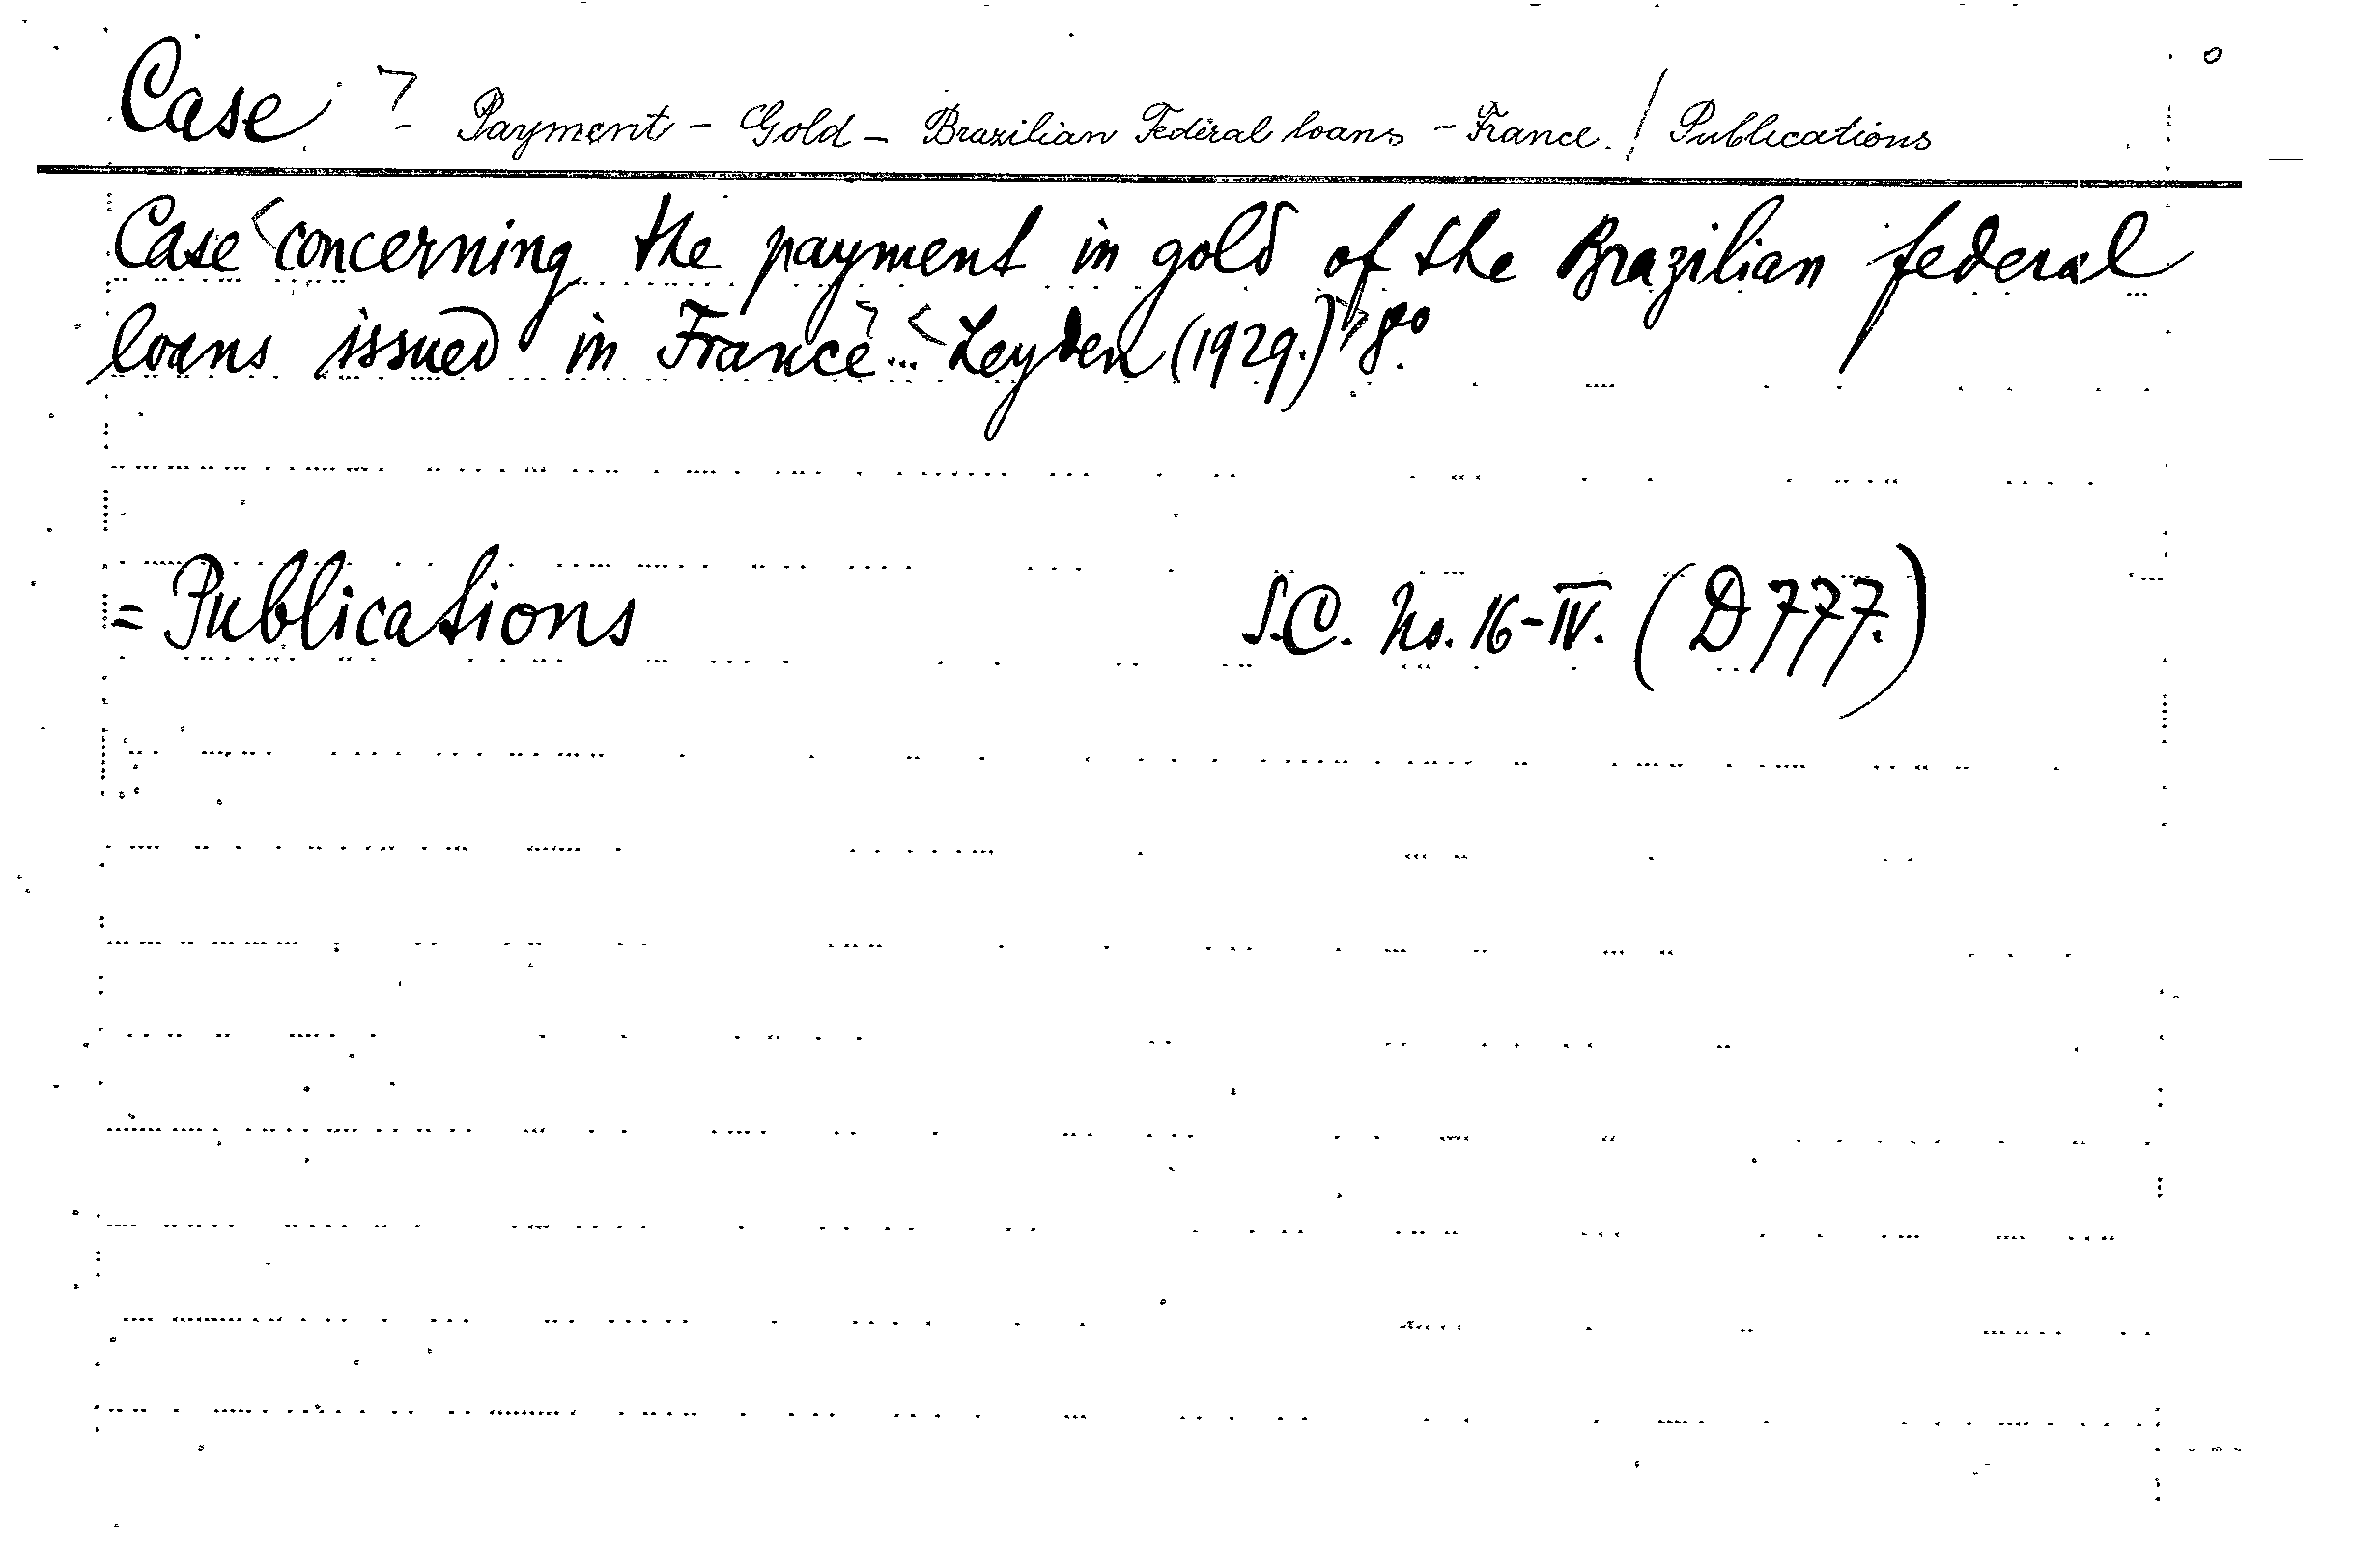 Case - Payment - Gold - Brazilian Federal loans - France. / Publications
Case concerning the payment in gold of the Brazilian federal
loans issued in France... Leyden (1929.) 8º.
= Publications S.C. No. 16-IV. (D 777.)